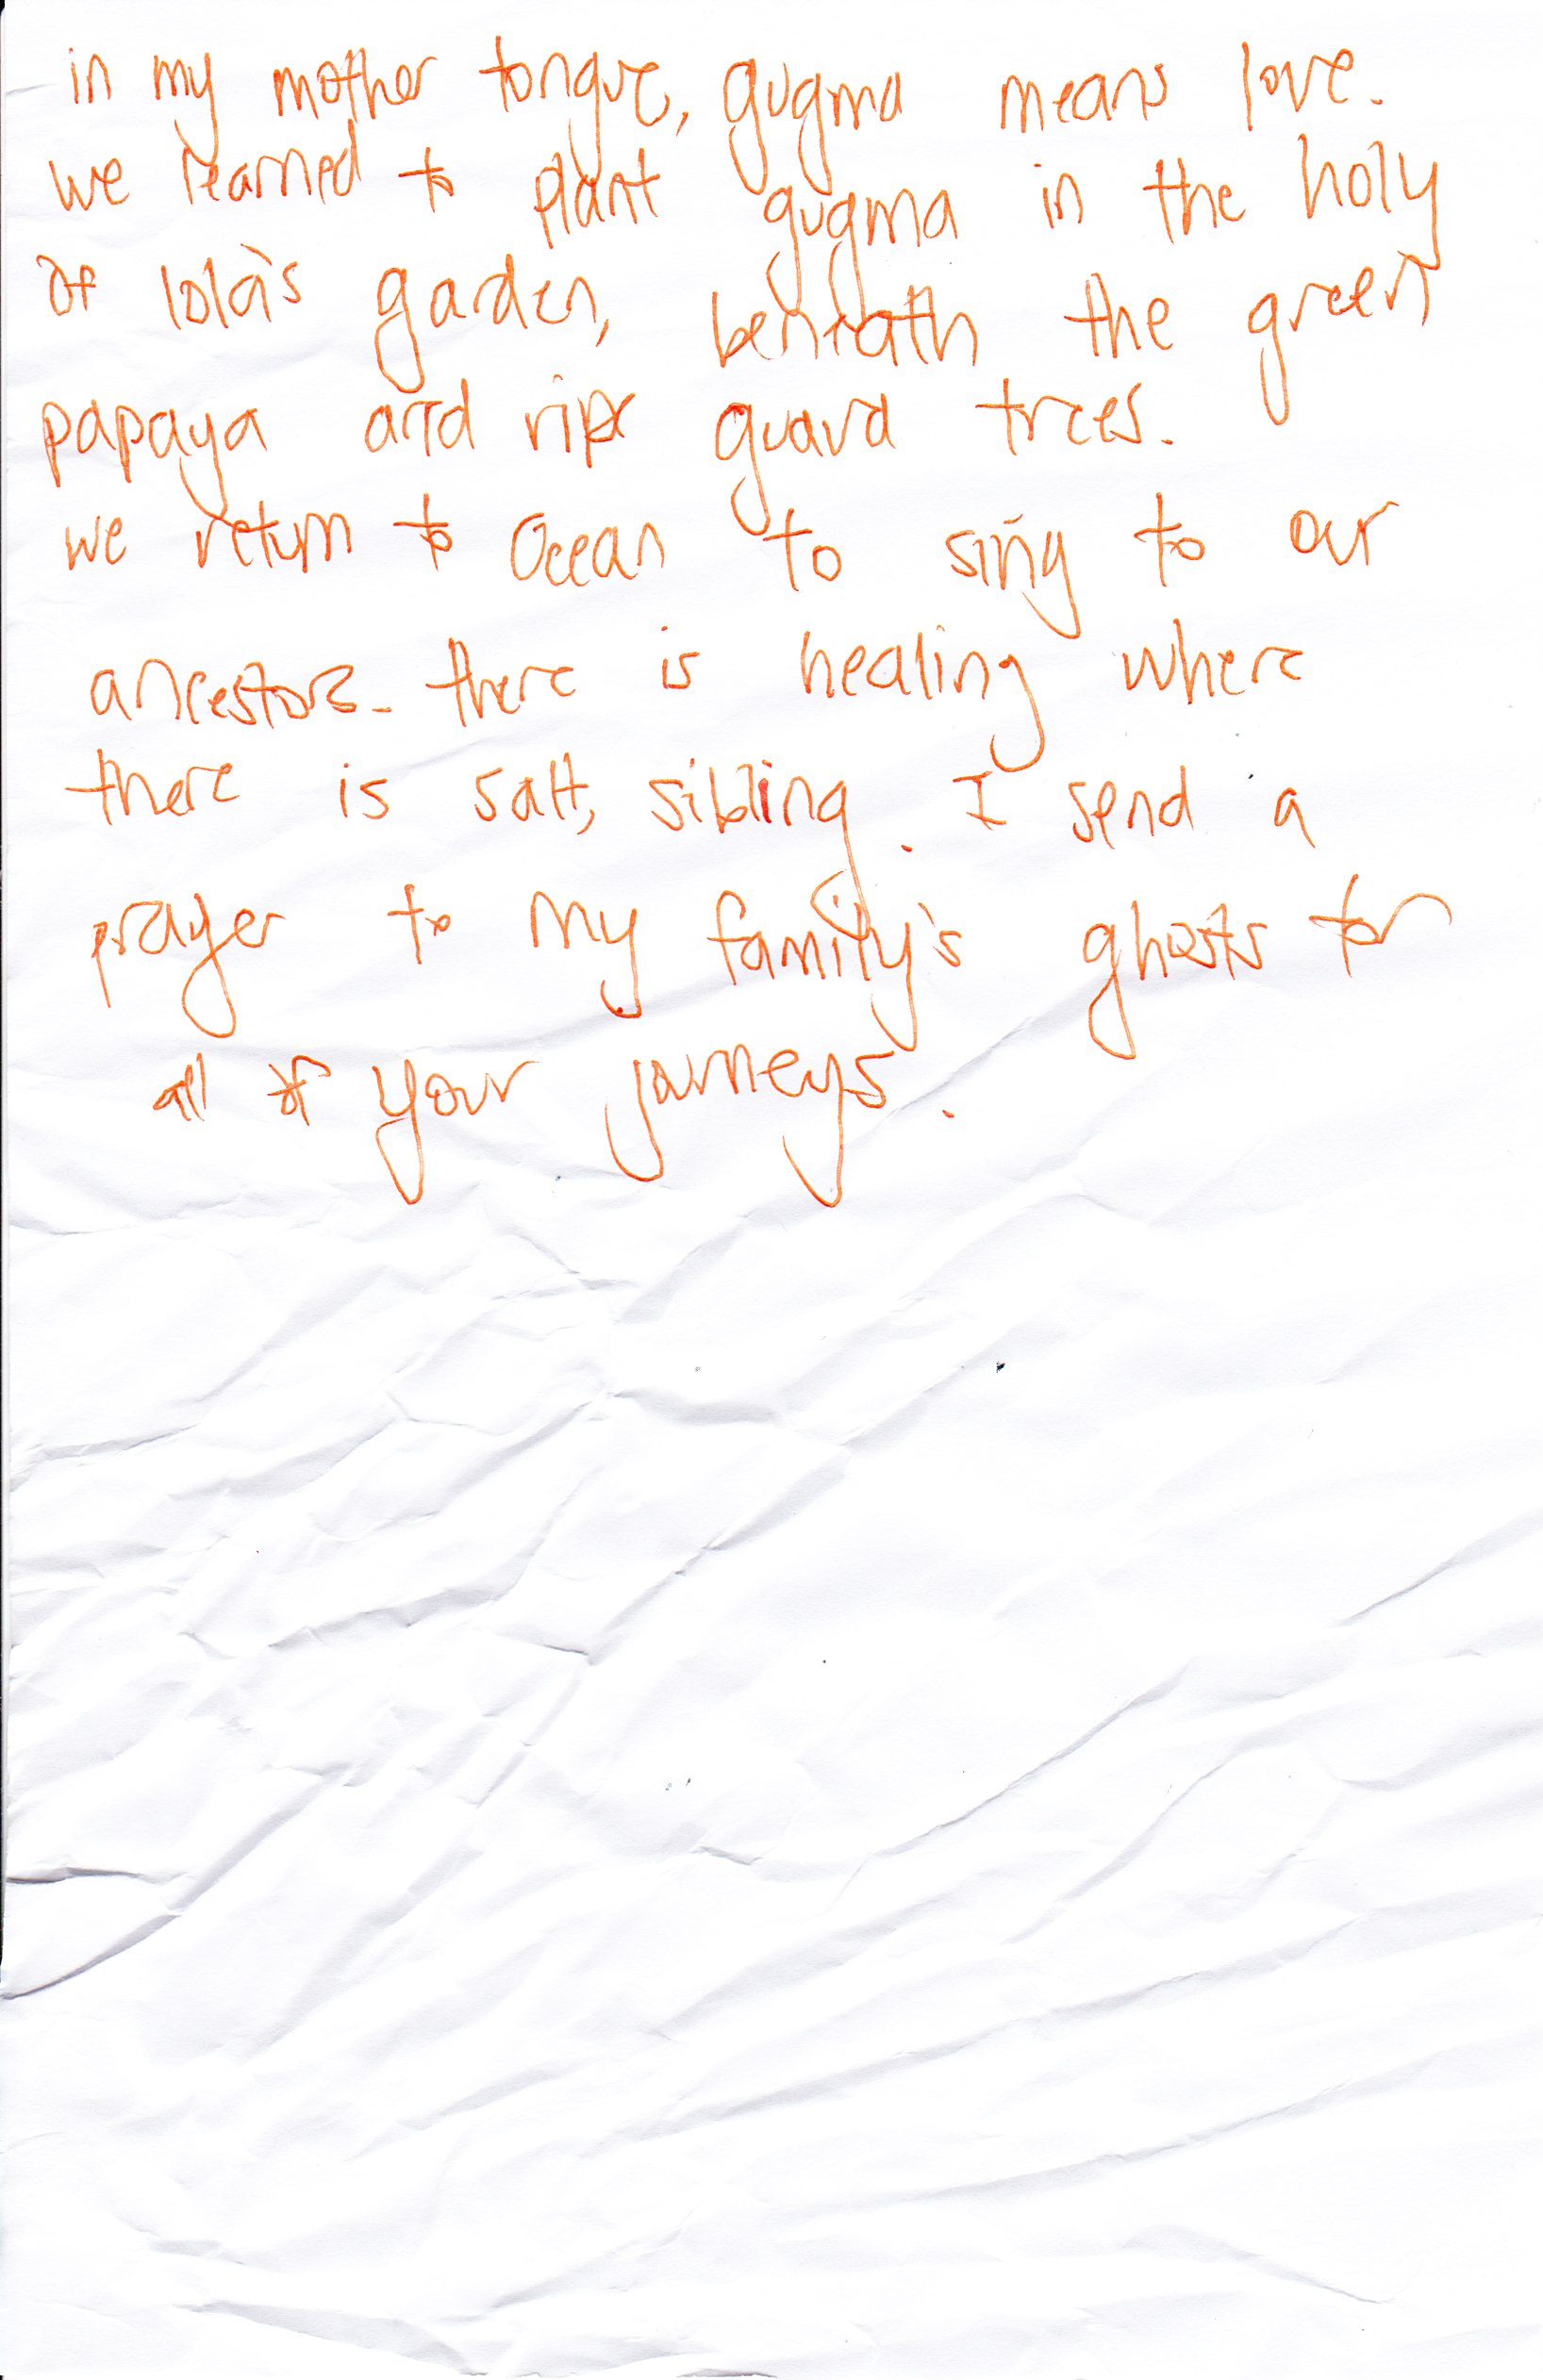 in my mother tongue, gugma means love.
we learned to plant gugma in the holy
of lola's garden, beneath the green
papaya and ripe guava trees.
we return to Ocean to sing to our
ancestors. there is healing where
there is salt, sibling. I send a
prayer to my family's ghosts for
all of your journeys.